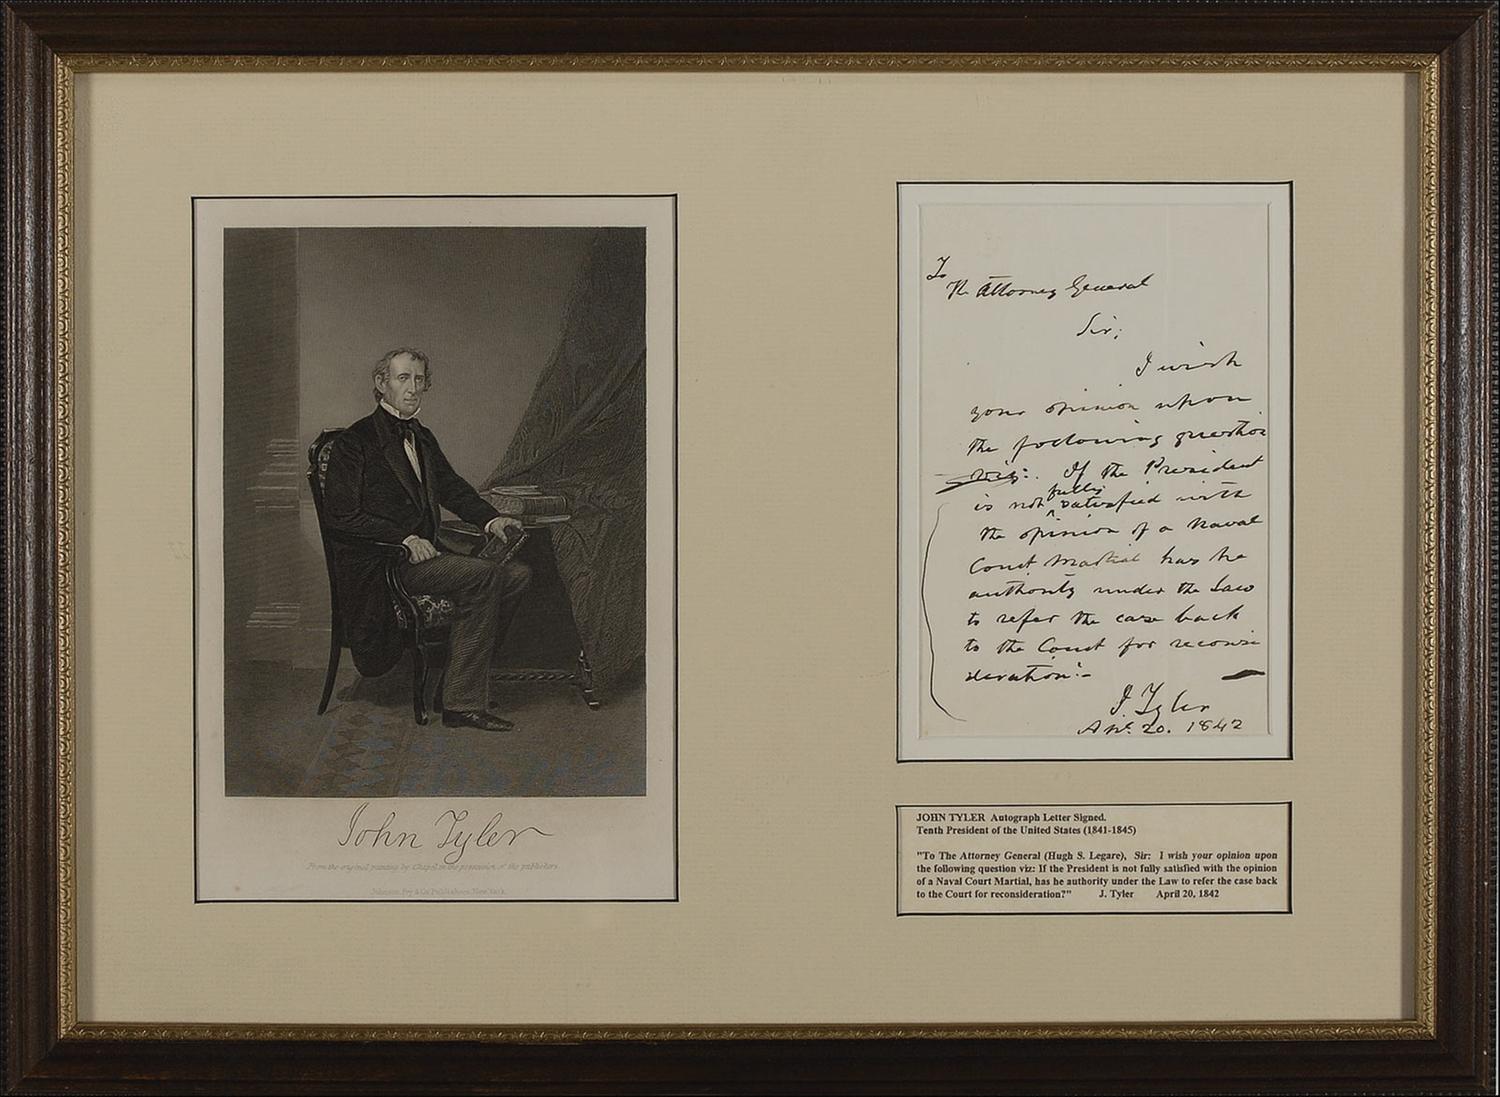 John Tyler
From the original painting by Chapel in the possession of the publishers
Johnson, Fry & Co Publishers, New York.
To
The Attorney General
Sir;
I wish
your opinion upon
the following question
viz: If the President
is not fully satisfied with
the opinion of a Naval
Court Martial has he
authority under the Law
to refer the case back
to the Court for reconsi
deration:-
J Tyler
Apl. 20. 1842
JOHN TYLER Autograph Letter Signed.
Tenth President of the United States (1841-1845)
"To The Attorney General (Hugh S. Legare), Sir: I wish your opinion upon
the following question viz: If the President is not fully satisfied with the opinion
of a Naval Court Martial, has he authority under the Law to refer the case back
to the Court for reconsideration?" J. Tyler April 20, 1842